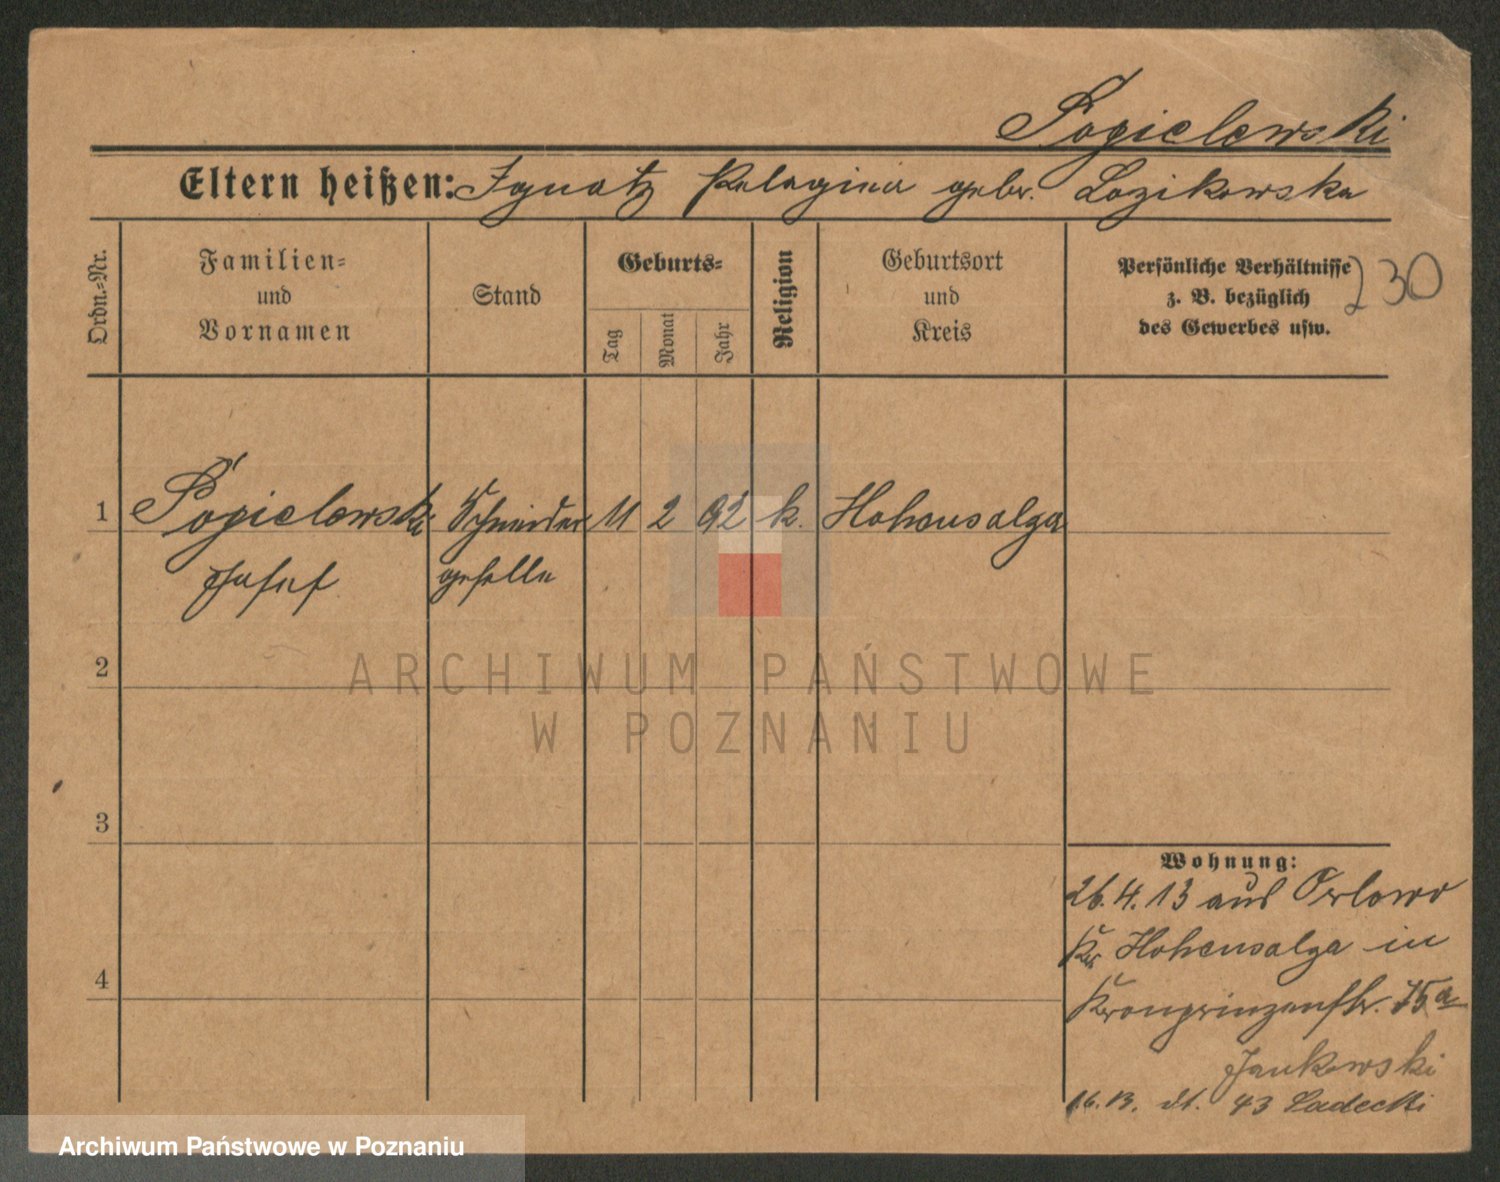 Pogielewski
Eltern heißen: Ignatz Pelagina gebr. Lozikowska
Ordn.-Nr.
Familien-
und
Vornamen
Stand
Geburts-
Tag
Monat
Jahr
Religion
Geburtsort
und
Kreis
Persönliche Verhältnisse
z. B. bezüglich
des Gewerbes usw.
230
1 Pogielewski Schneider 11 2 92 k. Hohensalga
Josef geselle
2
3
4
Wohnung:
26.4.13 aus Orlowo
Kr. Hohensalga in
Kronprinzenstr. 75a
Jankowski
43 Sadecki
ARCHIWUM PAŃSTWOWE
W POZNANIU
Archiwum Państwowe w Poznaniu